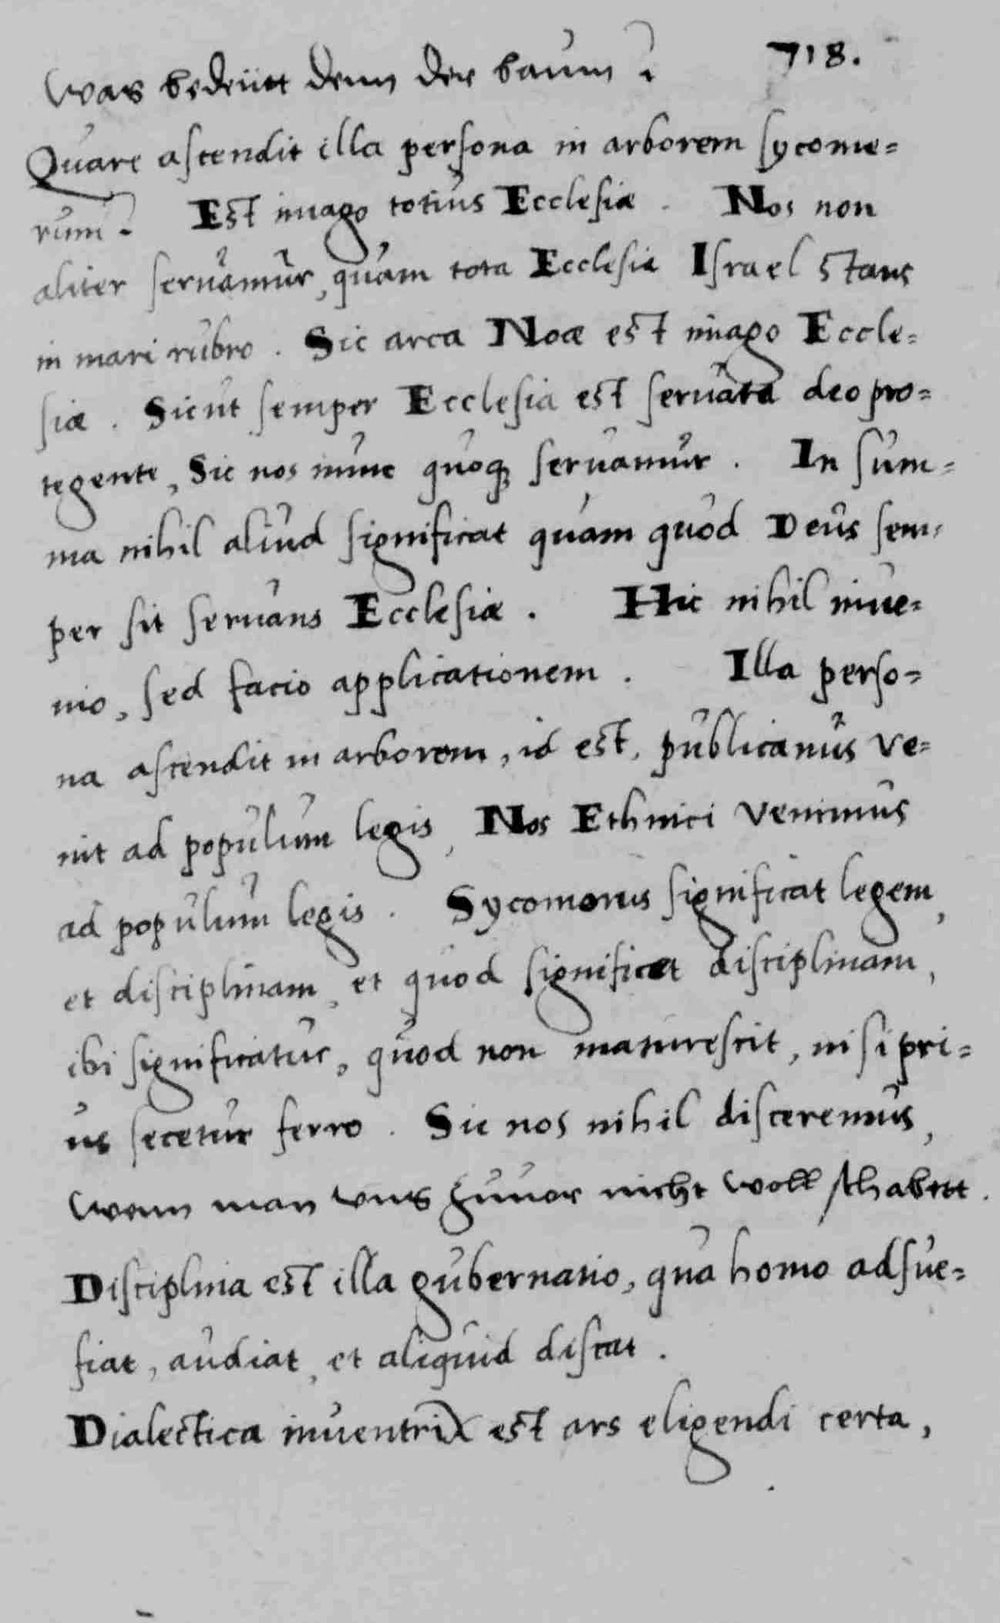 Was bedeütt denn der baum? 718.
Quare ascendit illa persona in arborem sycome=
rum? Est imago totius Ecclesiæ. Nos non
aliter seruamur, quam tota Ecclesia Israel stans
in mari rubro. Sic arca Noæ est imago Eccle=
siæ. Sicut semper Ecclesia est seruata deo pro=
tegente, Sic nos nunc quoq; seruamur. In sum=
ma nihil aliud significat quam quod Deus sem=
per sit seruans Ecclesiæ. Hic nihil inue=
nio, sed facio applicationem. Illa perso=
na ascendit in arborem, id est, publicanus ve=
nit ad populum legis, Nos Ethnici venimus
ad populum legis. Sycomorus significat legem,
et disciplinam, et quod significet disciplinam,
ibi significatur, quod non maturescit, nisi pri=
us secetur ferro. Sic nos nihil disceremus,
wenn man vns zuuor nicht woll schabett.
Disciplina est illa gubernatio, qua homo adsue=
fiat, audiat, et aliquid discat.
Dialectica inuentrix est ars eligendi certa,